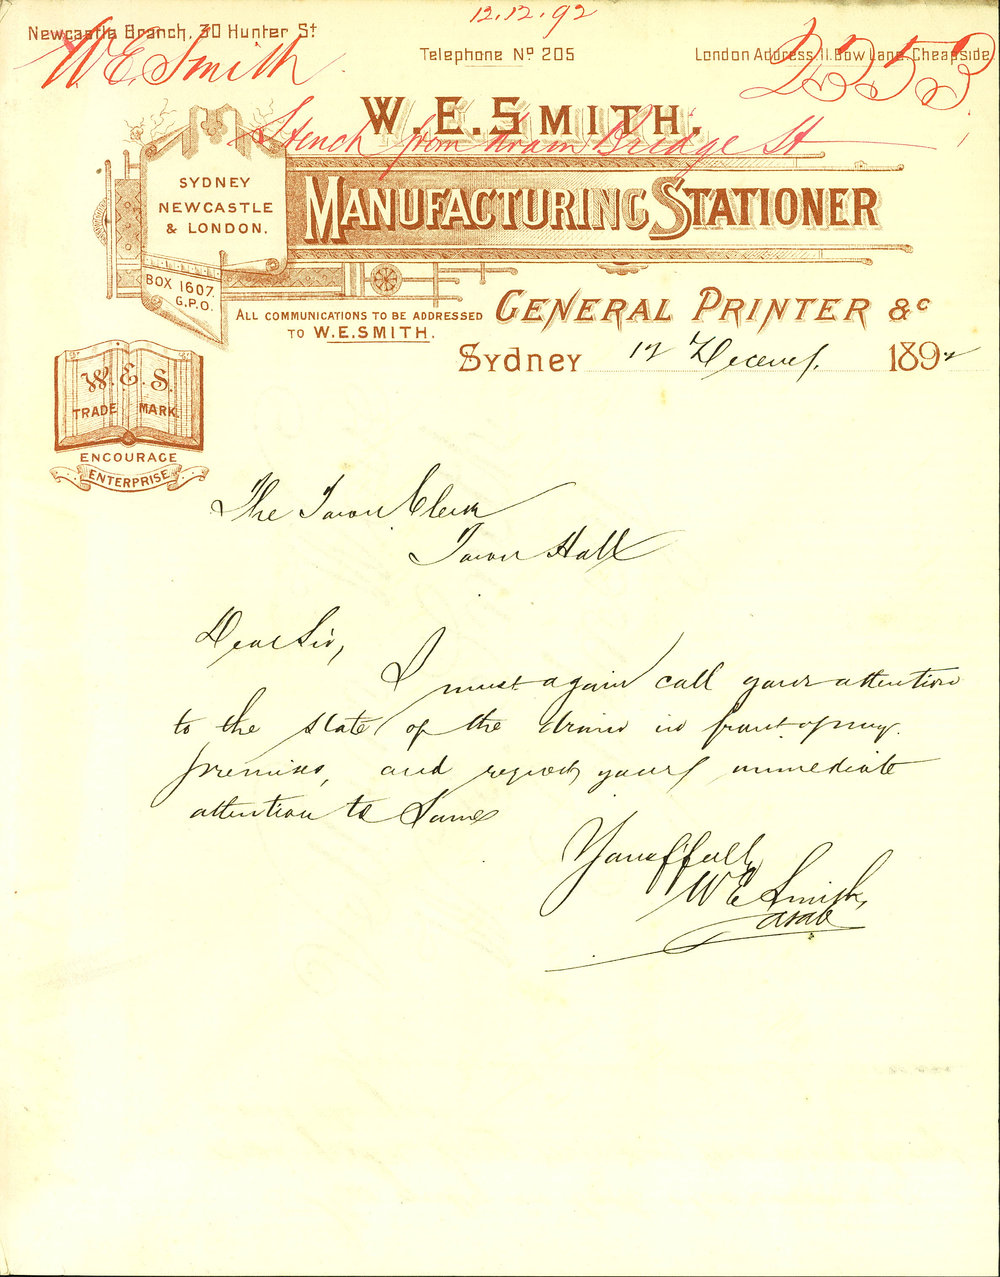 12.12.92
Newcastle Branch, 30 Hunter St
Telephone No. 205
London Address, 11. Bow Lane, Cheapside
W E Smith
2253
W. E. SMITH.
Stench from drain Bridge St
SYDNEY
NEWCASTLE
& LONDON.
MANUFACTURING STATIONER
BOX 1607.
G.P.O.
ALL COMMUNICATIONS TO BE ADDRESSED
TO W.E.SMITH.
GENERAL PRINTER &c
Sydney 12 Decemr. 1892
W. E. S.
TRADE MARK
ENCOURAGE
ENTERPRISE
The Town Clerk
Town Hall
Dear Sir,
I must again call your attention
to the state of the drain in front of my
premises, and request your immediate
attention to Same
Yours ffully
W E Smith,